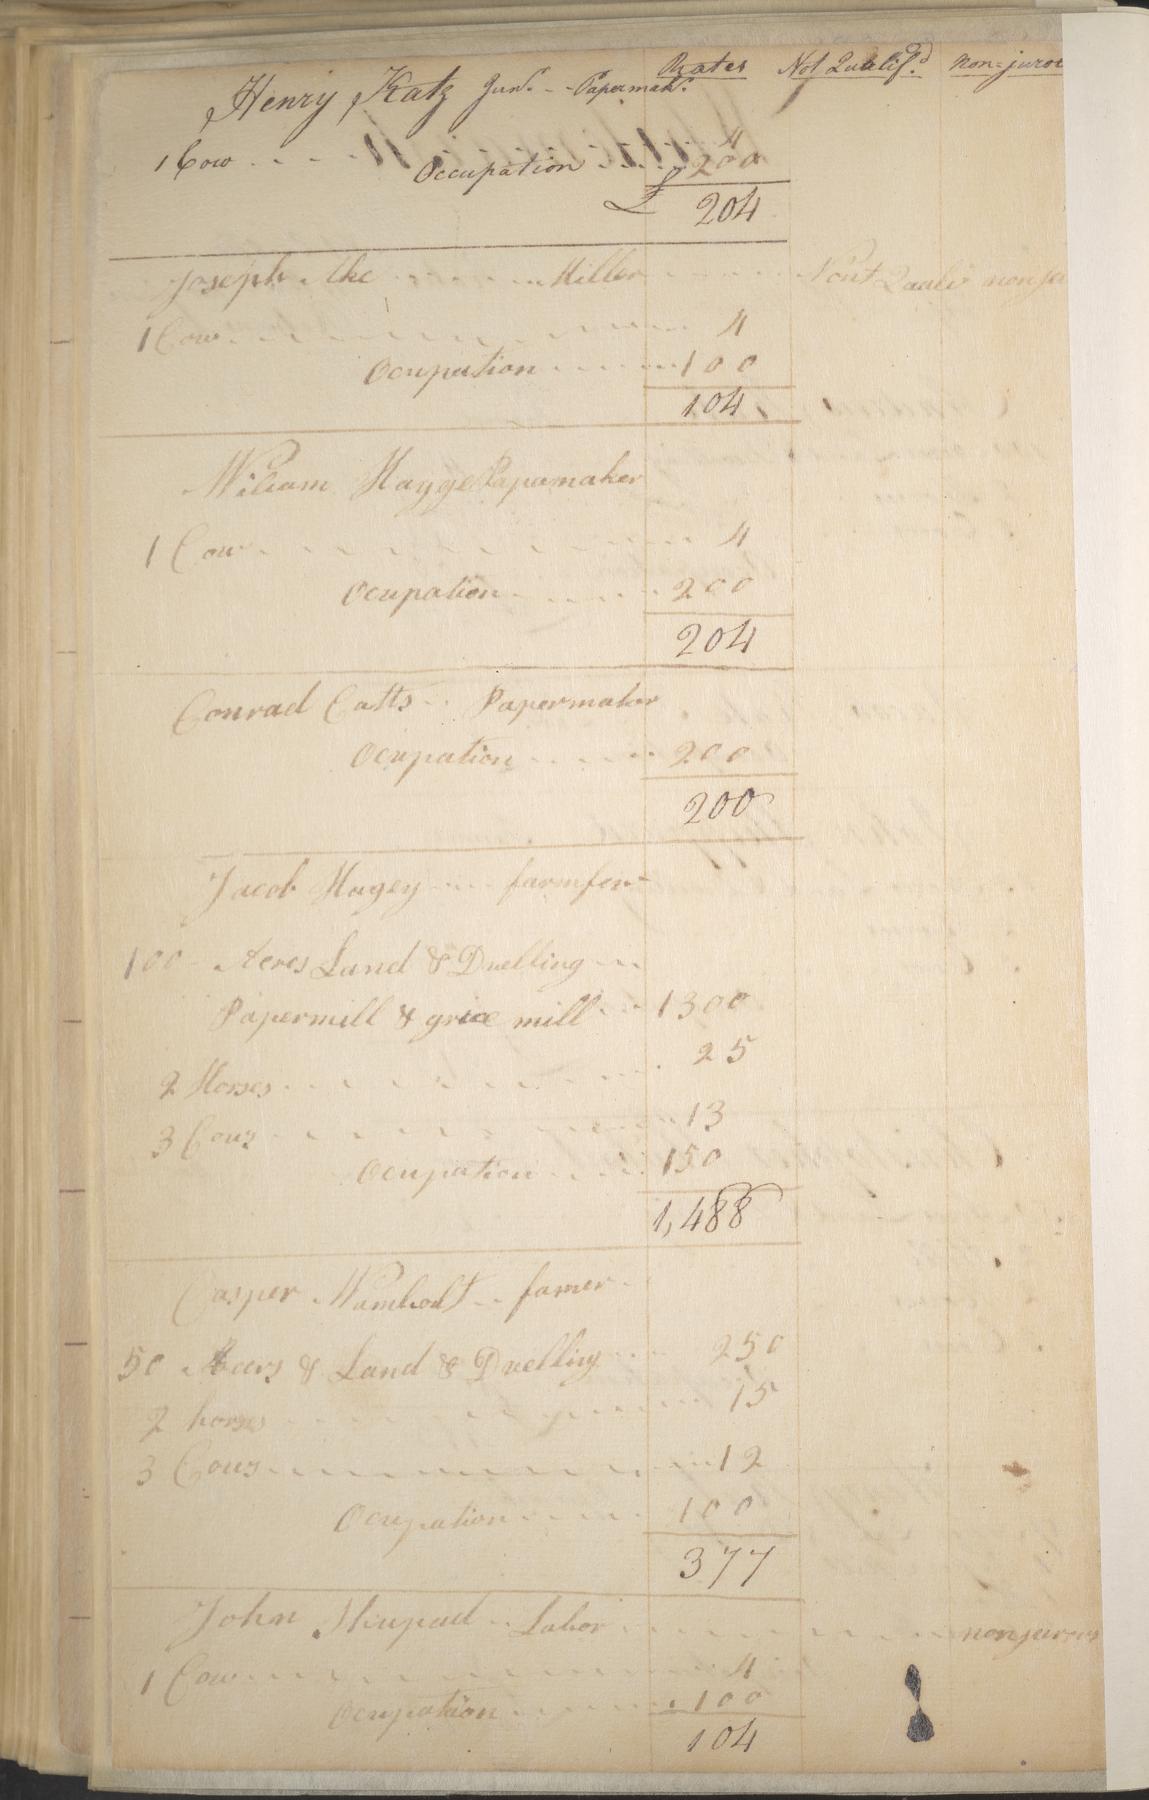 Rates Not Qualifd. non-juror
Henry Katz Junr. - - Papermakr.
4
1 Cow . . - - Occupation 200
£ 204
Joseph Ake . . . . . . . . Miller . . . . . . Nont Quali nonju
1 Cow . . . . . . . 4
Ocupation . . . . . . 100
104
Wiliam Hagge Papumaker
1 Cow . . . . . . . 4
Ocupation . . . . . 200
204
Conrad Catts - - Papermakor
Ocupation . . . . . 200
200
Jacob Hagey . . . . farmfer
100 - Acres Land & Dwelling - -
Papermill & grice mill . . . 1300
25
2 Horses . . . . . . .
3 Cows . . . . . . . 13
Ocupation . . . . . 150
1,488
Casper - - famer -
50 Acers & Land & Dwelling . . . 250
2 horses . . . . . . . 15
3 Cows . . . . . . . 12
Ocupation . . . . . 100
377
John . . Labor . . . . . . . . nonjurors
1 Cow . . . . . . . 4
Ocupation . . . . . 100
104